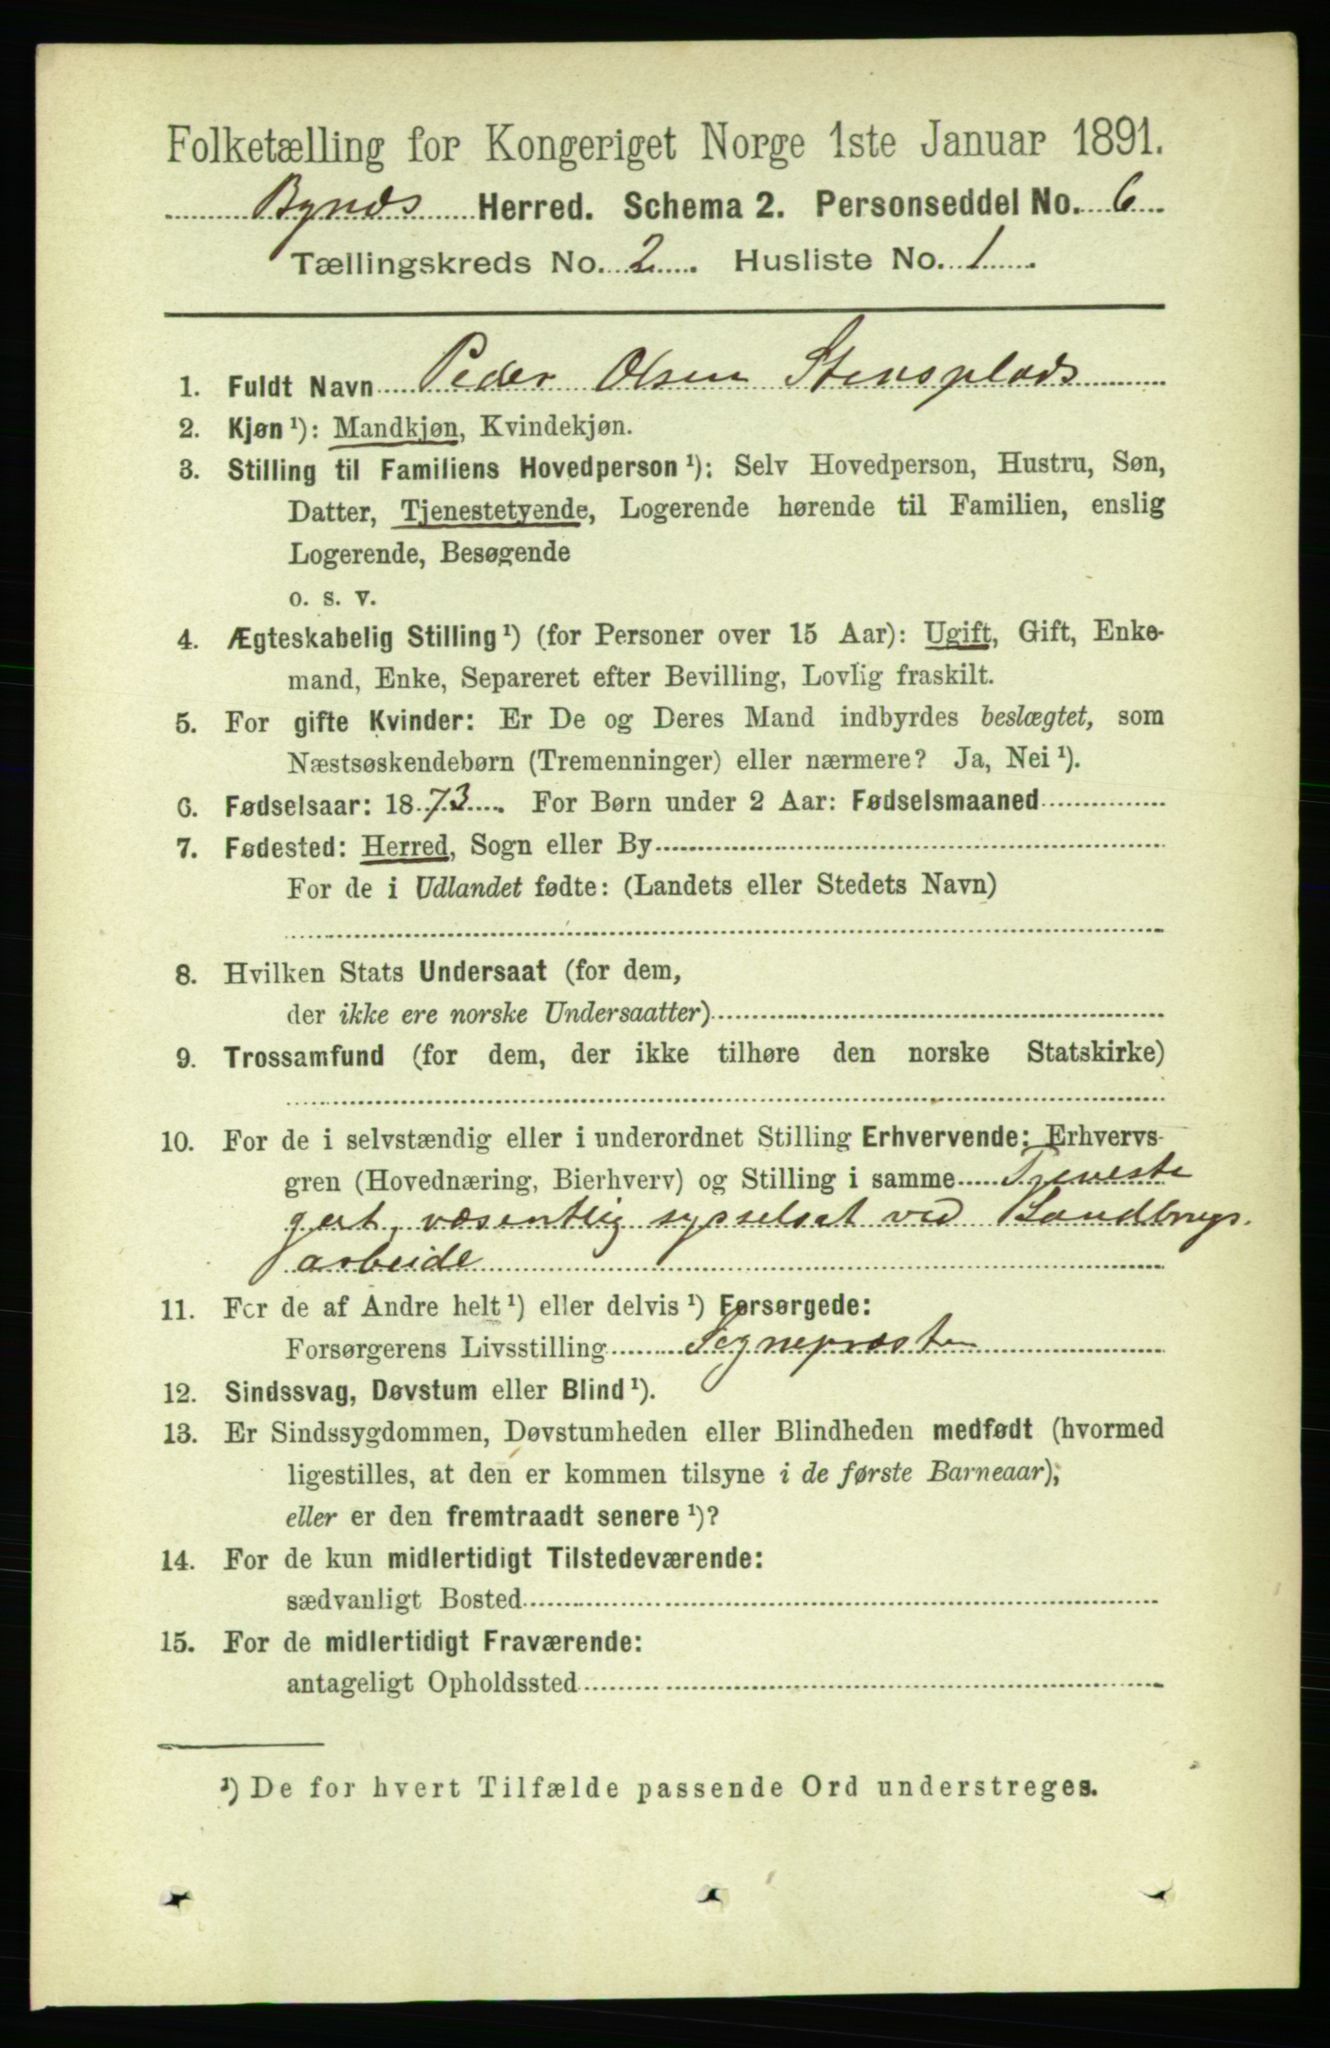 Folketælling for Kongeriget Norge 1ste Januar 1891.
Bynæs Herred. Schema 2. Personseddel No. 6
Tællingskreds No. 2. Husliste No. 1
1. Fuldt Navn Peder Olsen Stensplads
2. Kjøn ¹): Mandkjøn, Kvindekjøn.
3. Stilling til Familiens Hovedperson ¹): Selv Hovedperson, Hustru, Søn,
Datter, Tjenestetyende, Logerende hørende til Familien, enslig
Logerende, Besøgende
o. s. v.
4. Ægteskabelig Stilling ¹) (for Personer over 15 Aar): Ugift, Gift, Enke-
mand, Enke, Separeret efter Bevilling, Lovlig fraskilt.
5. For gifte Kvinder: Er De og Deres Mand indbyrdes beslægtet, som
Næstsøskendebørn (Tremenninger) eller nærmere? Ja, Nei ¹).
6. Fødselsaar: 1873. For Børn under 2 Aar: Fødselsmaaned
7. Fødested: Herred, Sogn eller By
For de i Udlandet fødte: (Landets eller Stedets Navn)
8. Hvilken Stats Undersaat (for dem,
der ikke ere norske Undersaatter)
9. Trossamfund (for dem, der ikke tilhøre den norske Statskirke)
10. For de i selvstændig eller i underordnet Stilling Erhvervende: Erhvervs-
gren (Hovednæring, Bierhverv) og Stilling i samme Tjeneste
gut, væsentlig sysselsat ved Landbrugs-
arbeide
11. For de af Andre helt ¹) eller delvis ¹) Forsørgede:
Forsørgerens Livsstilling Sognepræsten
12. Sindssvag, Døvstum eller Blind ¹).
13. Er Sindssygdommen, Døvstumheden eller Blindheden medfødt (hvormed
ligestilles, at den er kommen tilsyne i de første Barneaar),
eller er den fremtraadt senere ¹)?
14. For de kun midlertidigt Tilstedeværende:
sædvanligt Bosted
15. For de midlertidigt Fraværende:
antageligt Opholdssted
¹) De for hvert Tilfælde passende Ord understreges.